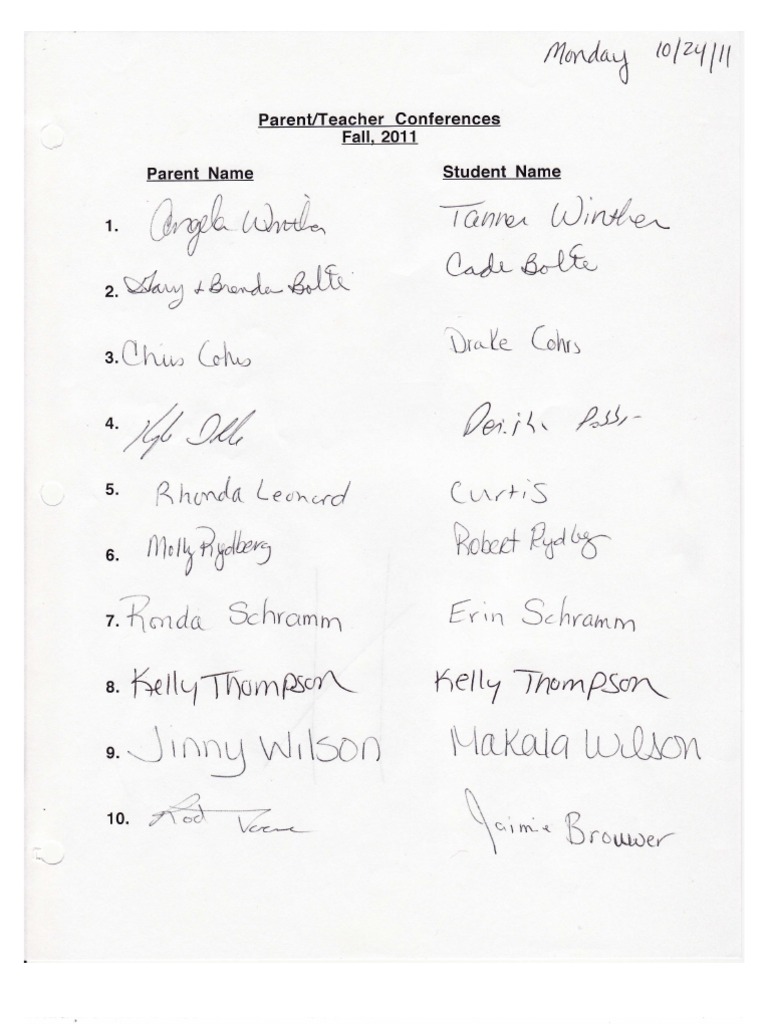 Monday 10/24/11
Parent/Teacher Conferences
Fall, 2011
Parent Name Student Name
1. Angela Winther Tanner Winther
2. Gary & Brenda Bolte Cade Bolte
3. Chris Cohrs Drake Cohrs
4. Kyle
5. Rhonda Leonard Curtis
6. Molly Rydberg Robert Rydberg
7. Ronda Schramm Erin Schramm
8. Kelly Thompson Kelly Thompson
9. Jinny Wilson Makala Wilson
10. Rod Jaimie Brouwer